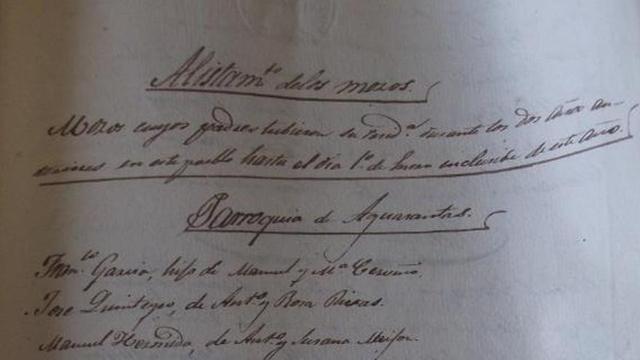 Alistam.to de los mozos.
Mozos cuyos padres tubieron su resid.a durante los dos años an-
teriores en este pueblo hasta el dia 1.o de Enero inclusibe de este año.
Parroquia de Aguasantas.
Fran.co Garcia, hijo de Manuel y M.a Cerviño.
Jose Quinteyro, de Ant.o y Rosa
Manuel Hermida, de Ant.o y Susana